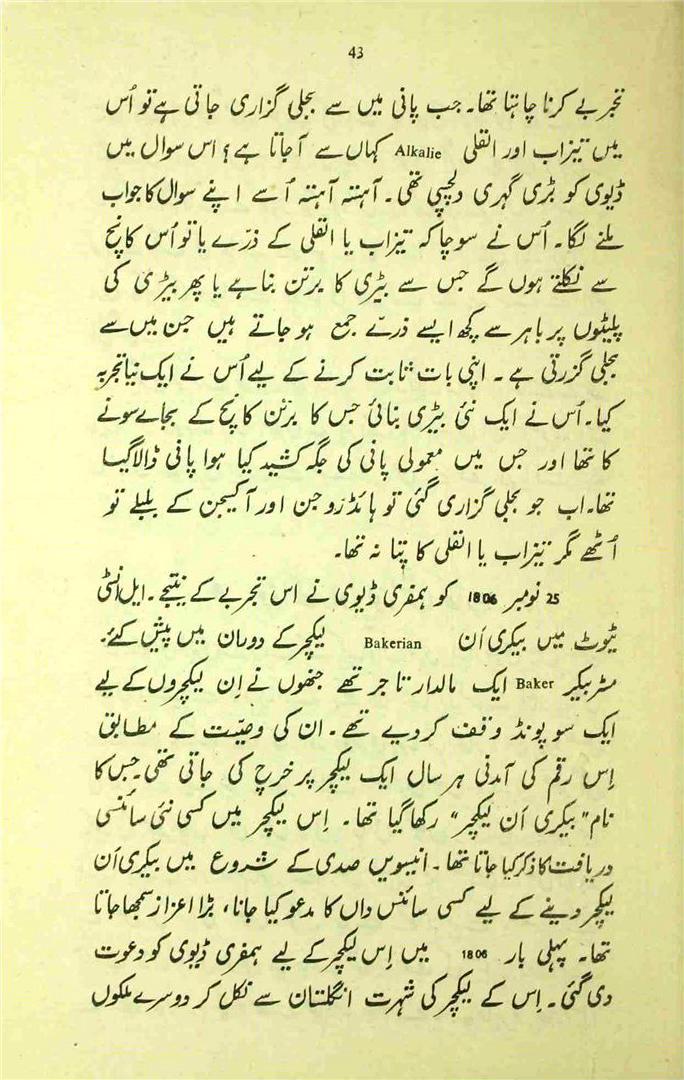 43
تجربے کرنا چاہتا تھا۔ جب پانی میں سے بجلی گزاری جاتی ہے تو اُس
میں تیزاب اور القلی Alkalie کہاں سے آجاتا ہے؟ اس سوال میں
ڈیوی کو بڑی گہری دلچسپی تھی۔ آہستہ آہستہ اُسے اپنے سوال کا جواب
ملنے لگا۔ اُس نے سوچا کہ تیزاب یا القلی کے ذرّے یا تو اُس کانچ
سے نکلتے ہوں گے جس سے بیٹری کا برتن بنا ہے یا پھر بیٹری کی
پلیٹوں پر باہر سے کچھ ایسے ذرّے جمع ہو جاتے ہیں جن میں سے
بجلی گزرتی ہے۔ اپنی بات ثابت کرنے کے لیے اُس نے ایک نیا تجربہ
کیا۔ اُس نے ایک نئی بیٹری بنائی جس کا برتن کانچ کے بجاے سونے
کا تھا اور جس میں معمولی پانی کی جگہ کشید کیا ہوا پانی ڈالا گیا
تھا۔ اب جو بجلی گزاری گئی تو ہائڈروجن اور آکسیجن کے بلبلے تو
اُٹھے مگر تیزاب یا القلی کا پتا نہ تھا۔
25 نومبر 1806 کو ہمفری ڈیوی نے اس تجربے کے نتیجے۔ ایل انسٹی
ٹیوٹ میں بیکری اَن Bakerian لیکچر کے دوران میں پیش کیے۔
مسٹر بیکر Baker ایک مالدار تاجر تھے جنھوں نے اِن لیکچروں کے لیے
ایک سو پونڈ وقف کر دیے تھے۔ ان کی وصیّت کے مطابق
اِس رقم کی آمدنی ہر سال ایک لیکچر پر خرچ کی جاتی تھی۔ جس کا
نام "بیکری اَن لیکچر" رکھا گیا تھا۔ اِس لیکچر میں کسی نئی سائنسی
دریافت کا ذکر کیا جاتا تھا۔ انیسویں صدی کے شروع میں بیکری اَن
لیکچر دینے کے لیے کسی سائنس داں کا مدعو کیا جانا، بڑا اعزاز سمجھا جاتا
تھا۔ پہلی بار 1806 میں اِس لیکچر کے لیے ہمفری ڈیوی کو دعوت
دی گئی۔ اِس کے لیکچر کی شہرت انگلستان سے نکل کر دوسرے ملکوں